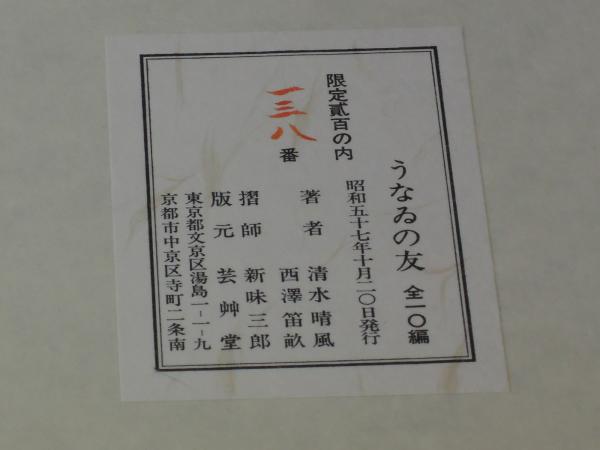 うなゐの友 全一〇編
昭和五十七年十月二〇日発行
限定貳百の内
一三八
番
著者 清水晴風
西澤笛畝
摺師 新味三郎
版元 芸艸堂
東京都文京区湯島一-一-九
京都市中京区寺町二条南